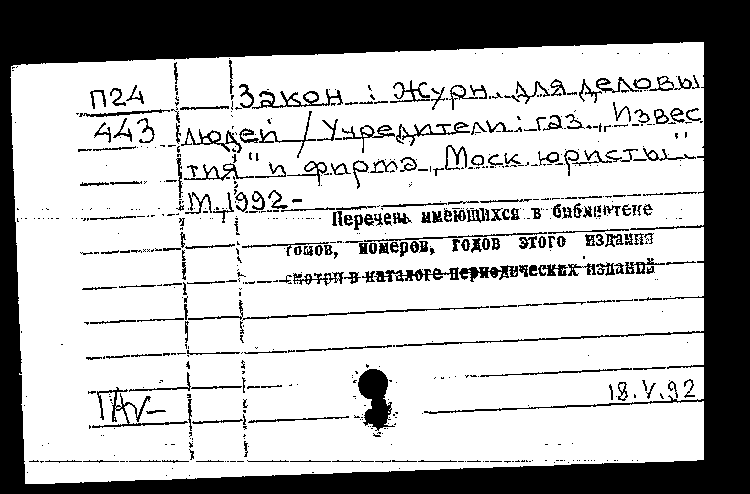 П24 Закон : Журн. для деловы
443 людей / Учредители: газ. „Извес
тия" и фирма „Моск. юристы". -
М., 1992-
Перечень имеющихся в библиотеке
томов, номеров, годов этого издания
смотри в каталоге периодических изданий
18.V.92